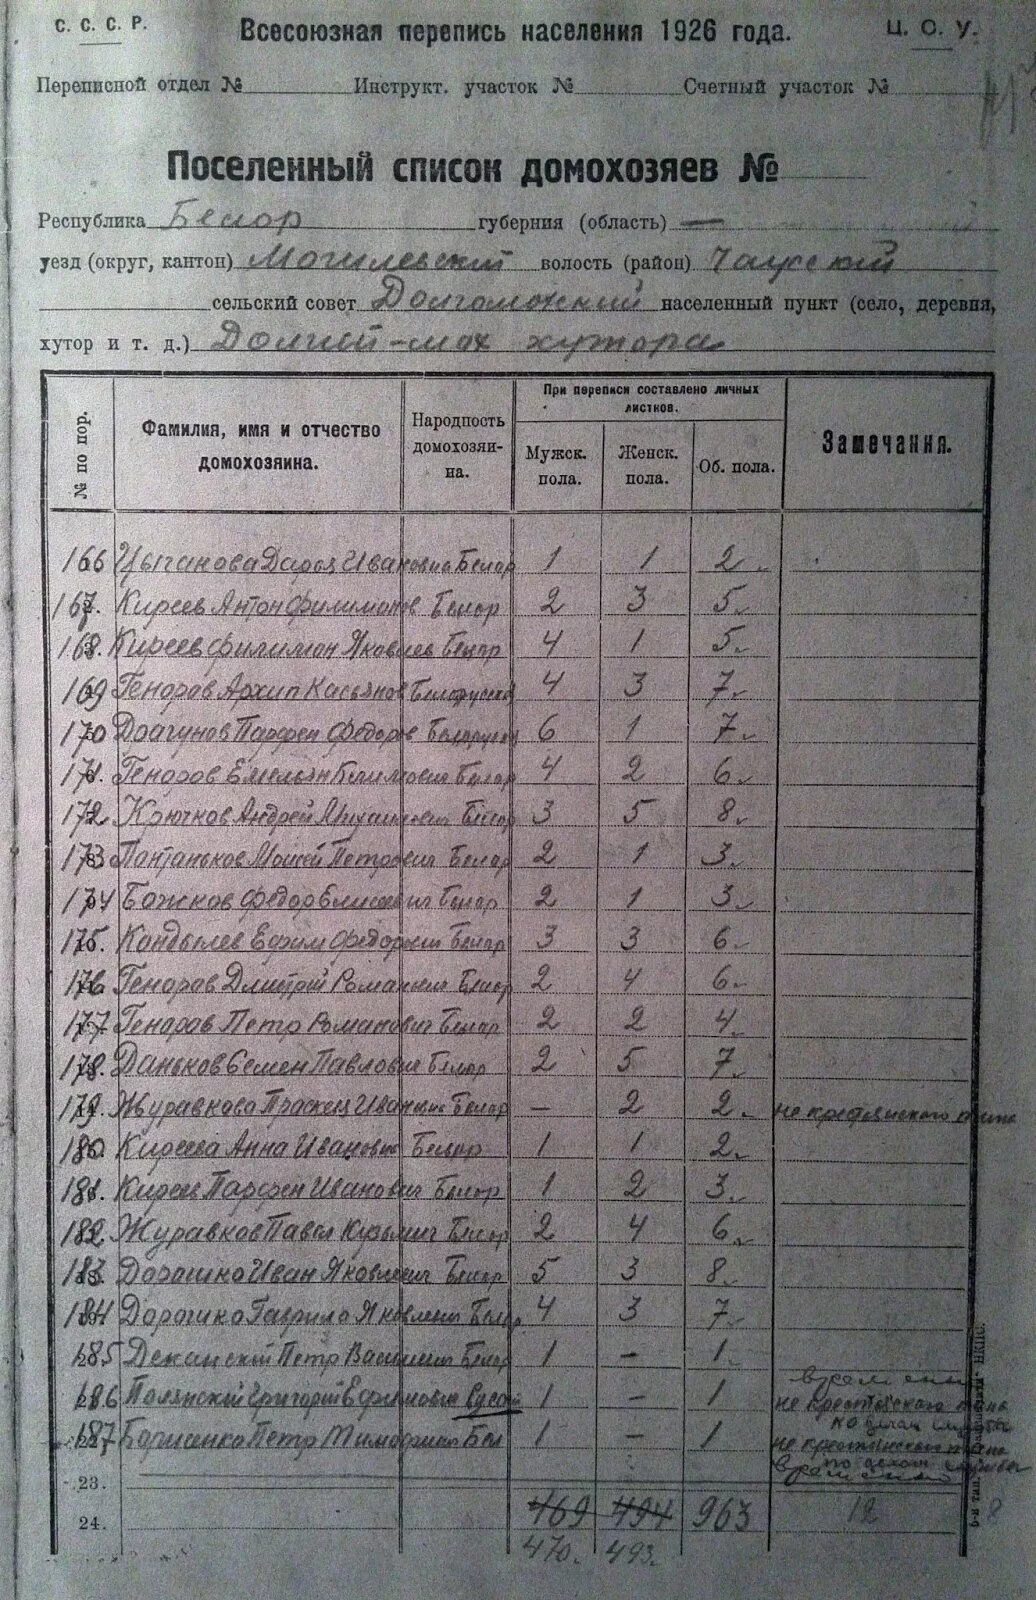 С. С. С. Р.
Всесоюзная перепись населения 1926 года.
Ц. С. У.
Переписной отдел № Инструкт. участок № Счетный участок №
Поселенный список домохозяев №
Республика Белор губерния (область) —
уезд (округ, кантон) Могилевский волость (район) Чаусский
сельский совет Долгомохский населенный пункт (село, деревня,
хутор и т. д.) Долгий-мох хутора
№ по пор.
Фамилия, имя и отчество домохозяина.
Народность домохозяи-на.
При переписи составлено личных листков.
Мужск. пола.
Женск. пола.
Об. пола.
Замечания.
166 Цыганова Ивановна Белор 1 1 2
167. Киреев Антон Филимонов Белор 2 3 5
168. Киреев Филимон Яковлев Белор 4 1 5
169 Генаров Архип Касьянов Белорусский 4 3 7
170 Драгунов Парфен Федоров 6 1 7
171. Генаров Емельян Белор 4 2 6
172 Крючков Андрей Михайлович Белор 3 5 8
173 Моисей Петрович Белор 2 1 3
174 Божков Федор Белор 2 1 3
175. Кандылев Ефим Федорович Белор 3 3 6
176 Генаров Дмитрий Романович Белор 2 4 6
177 Генаров Петр Романович Белор 2 2 4
178. Даньков Семен Павлович Белор 2 5 7
179. Журавкова Ивановна Белор — 2 2 не крестьянского типа
180. Киреева Анна Ивановна Белор 1 1 2
181. Киреев Парфен Иванович Белор 1 2 3
182. Журавков Павел Кузьмич Белор 2 4 6
183 Дорошко Иван Яковлевич Белор 5 3 8
184 Дорошко Гаврила Яковлевич Белор 4 3 7
185 Деканский Петр Василевич Белор 1 — 1
186 Полянский Григорий Ефимович 1 — 1 временно
не крестьянского типа
по делам службы
187 Петр Тимофеевич Бел 1 — 1 не крестьянского типа
по делам службы
временно
23.
24. 469 494 963 12 8
470 493